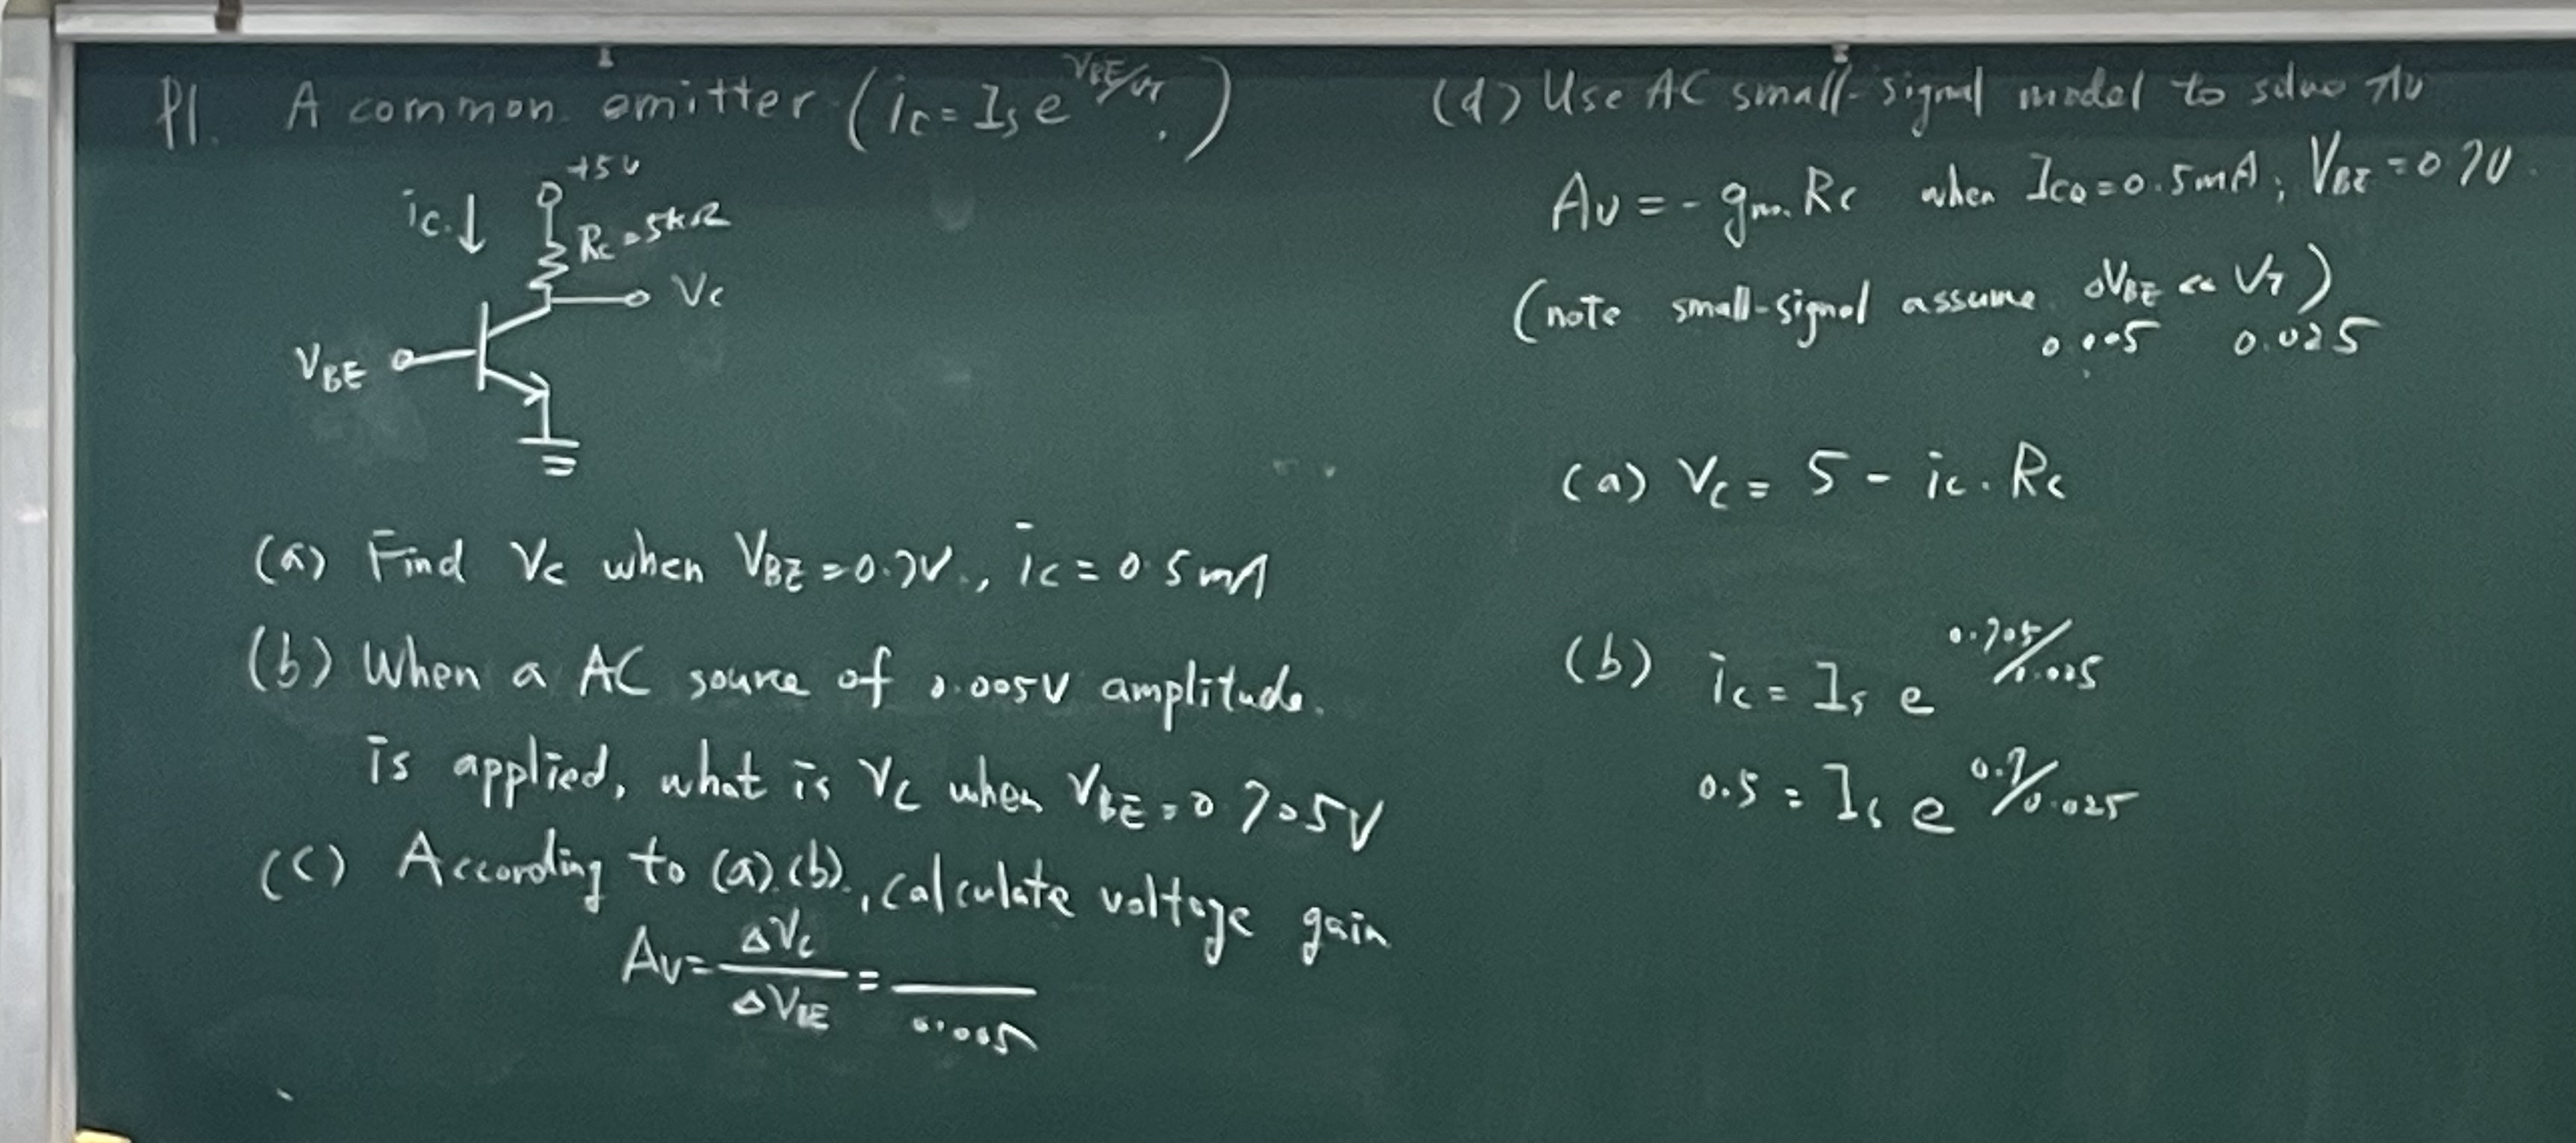 P1. A common emitter (ic = Is e^VBE/VT)
+5V
ic ↓
Rc = 5kΩ
Vc
VBE
(a) Find Vc when VBE = 0.7V, ic = 0.5mA
(b) When a AC source of 0.005V amplitude
is applied, what is Vc when VBE = 0.705V
(c) According to (a).(b)., calculate voltage gain
Av = ΔVc / ΔVBE = ___ / 0.005
(d) Use AC small-signal model to solve Av
Av = - gm. Rc when ICQ = 0.5mA, VBE = 0.7V
(note small-signal assume ΔVBE << VT)
0.005 0.025
(a) Vc = 5 - ic. Rc
(b) ic = Is e^0.705/0.025
0.5 = Is e^0.7/0.025